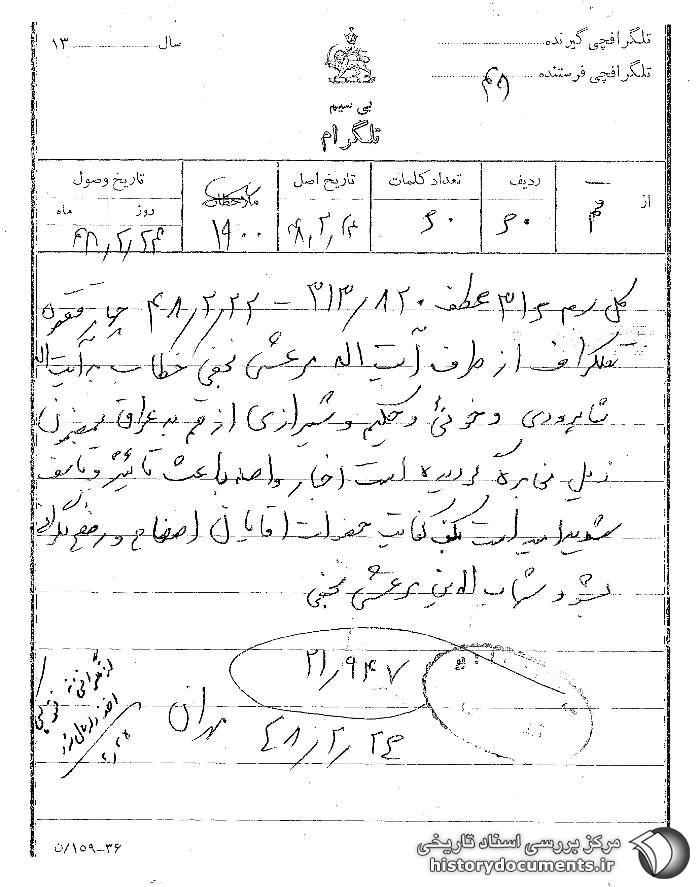 تلگرافچی گیرنده
سال ۱۳
تلگرافچی فرستنده
بی سیم
تلگرام
از
ردیف
تعداد کلمات
تاریخ اصل
ملاحظات
تاریخ وصول
روز ماه
قم
۶۰
۶۰
۱۹۰۰
۴۸/۲/۲۴
کل سوم ۳۱۶ عطف ۳۱۳/۸۲۰ - ۴۸/۲/۲۲ چهار فقره
تلگراف از طرف آیت اله مرعشی نجفی خطاب به آیت اله
شاهرودی و خوئی و حکیم و شیرازی از قم به عراق بمضمون
ذیل مخابره گردیده است اخبار واصله باعث تأثیر و تأسف
شدید امید است بکف کفایت حضرات آقایان اصلاح و رفع نگرانی
بشود شهاب الدین مرعشی نجفی
۲۱/۹۴۷
مهران
۴۸/۲/۲۴
۳۶-۱۵۹/ن
مرکز بررسی اسناد تاریخی
historydocuments.ir